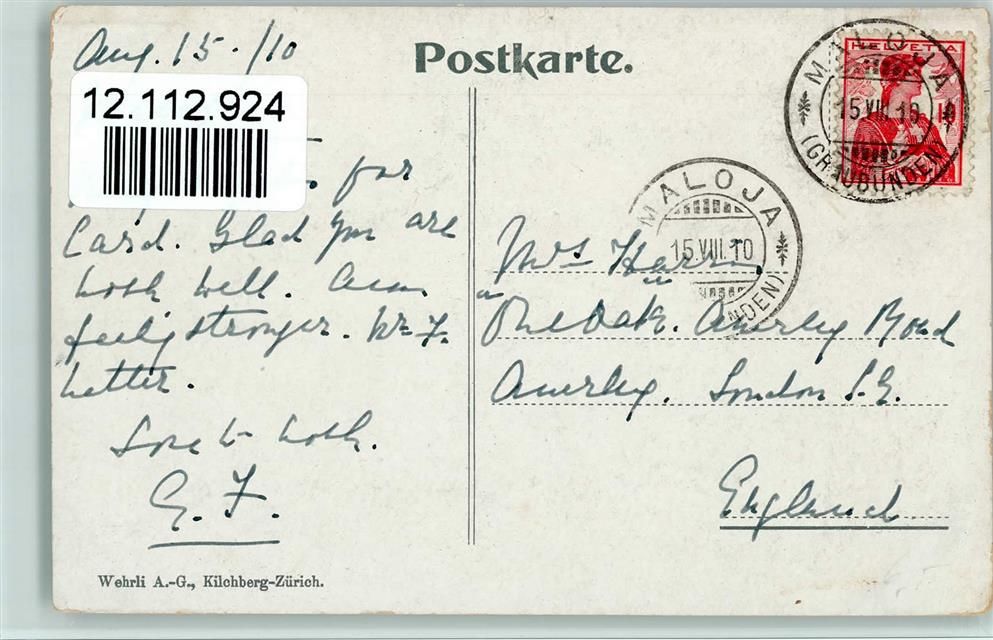 Aug. 15. /10
Postkarte.
12.112.924
for
Card. Glad you are
both well. Am
feeling stronger. Mr F.
better.
Love to both.
G. F.
Wehrli A.-G., Kilchberg-Zürich.
HELVETIA
10
MALOJA
15.VIII.10
(GRAUBÜNDEN)
MALOJA
15.VIII.10
NDEN)
Mrs Harris
"One Oak". Anerley Road
Anerley. London S.E.
England